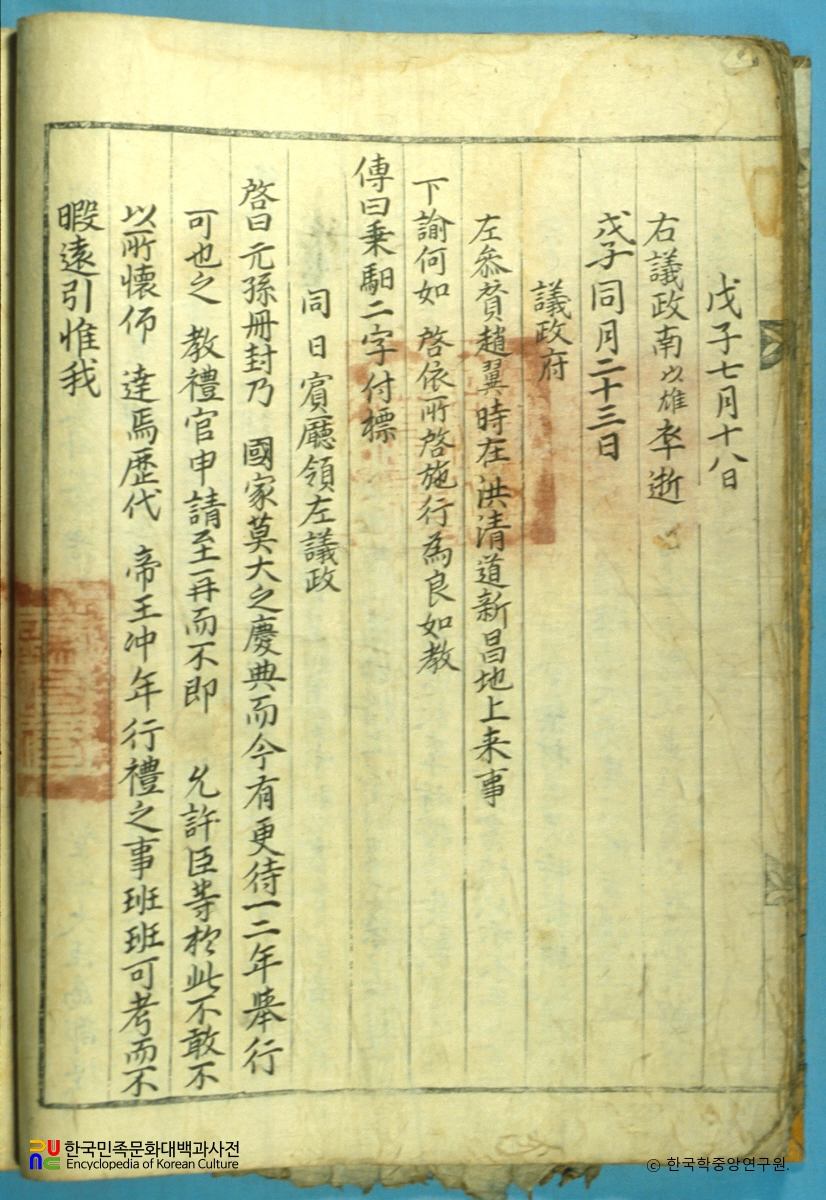 戊子七月十八日
右議政南以雄卒逝
戊子同月二十三日
議政府
左叅賛趙翼時在洪清道新昌地上来事
下諭何如 啓依所啓施行為良如教
傳曰乗馹二字付標
同日賓廳領左議政
啓曰元孫冊封乃 國家莫大之慶典而今有更待一二年舉行
可也之 教禮官申請至再而不即 允許臣等於此不敢不
以所懐仰 達焉歴代 帝王冲年行禮之事班班可考而不
暇遠引惟我
한국민족문화대백과사전
Encyclopedia of Korean Culture
© 한국학중앙연구원.